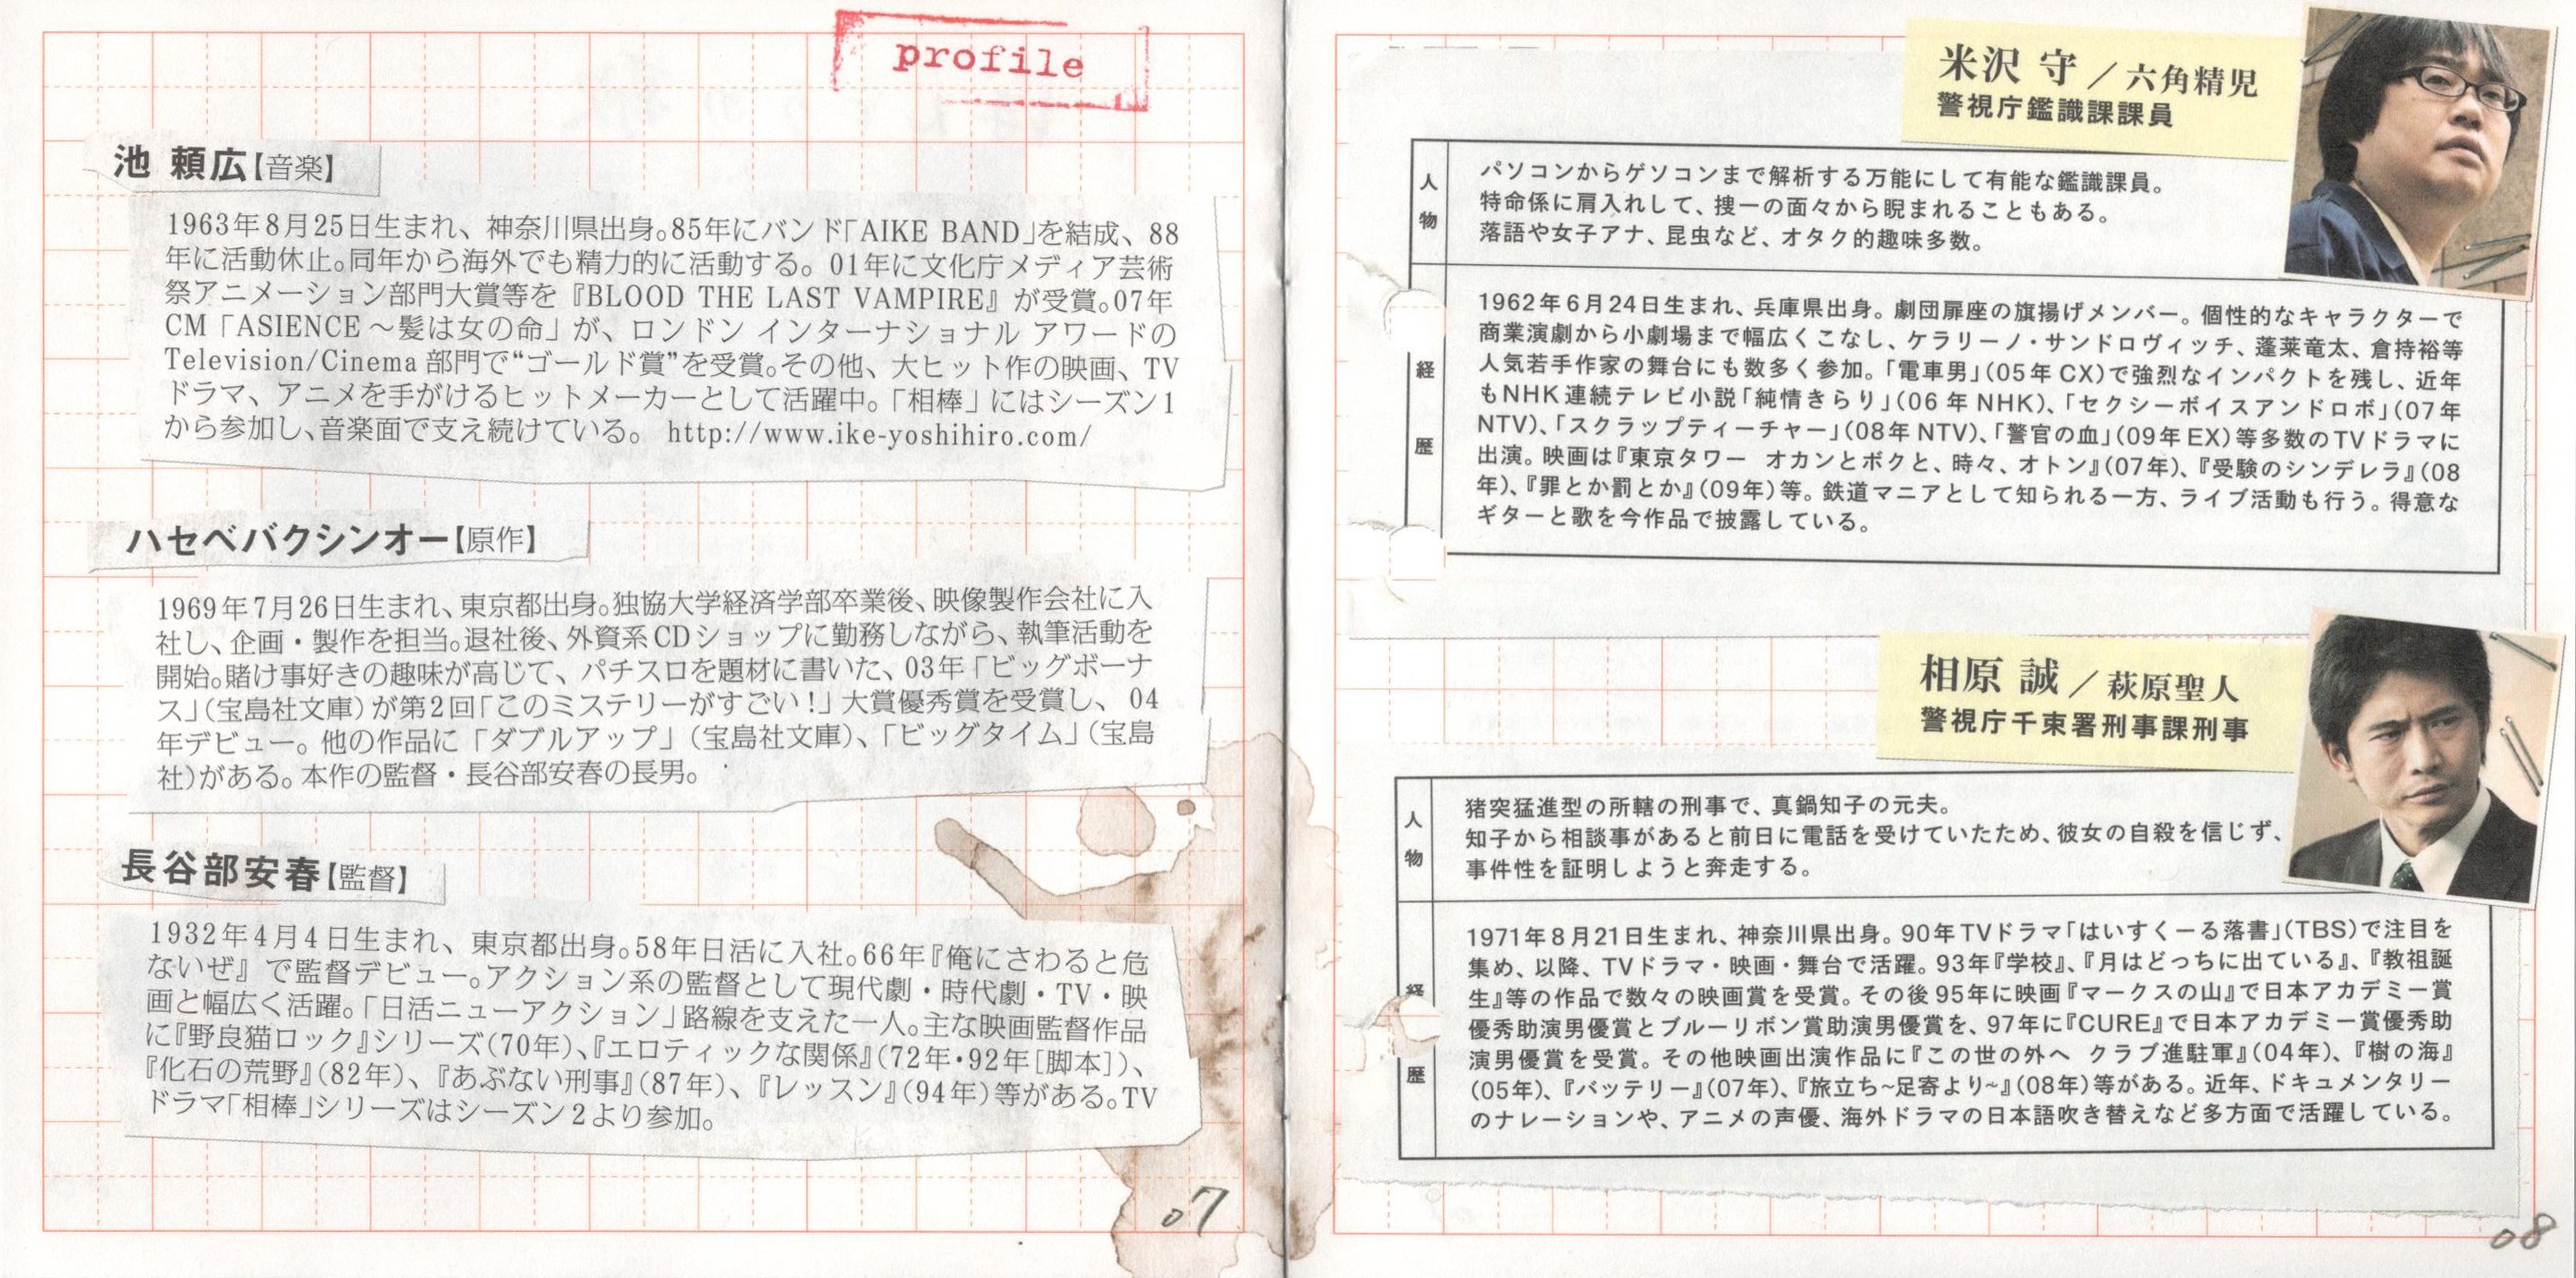 profile
池 頼広【音楽】
1963年8月25日生まれ、神奈川県出身。85年にバンド「AIKE BAND」を結成、88
年に活動休止。同年から海外でも精力的に活動する。01年に文化庁メディア芸術
祭アニメーション部門大賞等を『BLOOD THE LAST VAMPIRE』が受賞。07年
CM「ASIENCE～髪は女の命」が、ロンドン インターナショナル アワードの
Television/Cinema部門で“ゴールド賞”を受賞。その他、大ヒット作の映画、TV
ドラマ、アニメを手がけるヒットメーカーとして活躍中。「相棒」にはシーズン1
から参加し、音楽面で支え続けている。 http://www.ike-yoshihiro.com/
ハセベバクシンオー【原作】
1969年7月26日生まれ、東京都出身。独協大学経済学部卒業後、映像製作会社に入
社し、企画・製作を担当。退社後、外資系CDショップに勤務しながら、執筆活動を
開始。賭け事好きの趣味が高じて、パチスロを題材に書いた、03年「ビッグボーナ
ス」（宝島社文庫）が第2回「このミステリーがすごい！」大賞優秀賞を受賞し、04
年デビュー。他の作品に「ダブルアップ」（宝島社文庫）、「ビッグタイム」（宝島
社）がある。本作の監督・長谷部安春の長男。
長谷部安春【監督】
1932年4月4日生まれ、東京都出身。58年日活に入社。66年『俺にさわると危
ないぜ』で監督デビュー。アクション系の監督として現代劇・時代劇・TV・映
画と幅広く活躍。「日活ニューアクション」路線を支えた一人。主な映画監督作品
に『野良猫ロック』シリーズ（70年）、『エロティックな関係』（72年・92年［脚本］）、
『化石の荒野』（82年）、『あぶない刑事』（87年）、『レッスン』（94年）等がある。TV
ドラマ「相棒」シリーズはシーズン2より参加。
07
米沢 守／六角精児
警視庁鑑識課課員
人物
パソコンからゲソコンまで解析する万能にして有能な鑑識課員。
特命係に肩入れして、捜一の面々から睨まれることもある。
落語や女子アナ、昆虫など、オタク的趣味多数。
経歴
1962年6月24日生まれ、兵庫県出身。劇団扉座の旗揚げメンバー。個性的なキャラクターで
商業演劇から小劇場まで幅広くこなし、ケラリーノ・サンドロヴィッチ、蓬莱竜太、倉持裕等
人気若手作家の舞台にも数多く参加。「電車男」（05年CX）で強烈なインパクトを残し、近年
もNHK連続テレビ小説「純情きらり」（06年NHK）、「セクシーボイスアンドロボ」（07年
NTV）、「スクラップティーチャー」（08年NTV）、「警官の血」（09年EX）等多数のTVドラマに
出演。映画は『東京タワー オカンとボクと、時々、オトン』（07年）、『受験のシンデレラ』（08
年）、『罪とか罰とか』（09年）等。鉄道マニアとして知られる一方、ライブ活動も行う。得意な
ギターと歌を今作品で披露している。
相原 誠／萩原聖人
警視庁千束署刑事課刑事
人物
猪突猛進型の所轄の刑事で、真鍋知子の元夫。
知子から相談事があると前日に電話を受けていたため、彼女の自殺を信じず、
事件性を証明しようと奔走する。
経歴
1971年8月21日生まれ、神奈川県出身。90年TVドラマ「はいすくーる落書」（TBS）で注目を
集め、以降、TVドラマ・映画・舞台で活躍。93年『学校』、『月はどっちに出ている』、『教祖誕
生』等の作品で数々の映画賞を受賞。その後95年に映画『マークスの山』で日本アカデミー賞
優秀助演男優賞とブルーリボン賞助演男優賞を、97年に『CURE』で日本アカデミー賞優秀助
演男優賞を受賞。その他映画出演作品に『この世の外へ クラブ進駐軍』（04年）、『樹の海』
（05年）、『バッテリー』（07年）、『旅立ち~足寄より~』（08年）等がある。近年、ドキュメンタリー
のナレーションや、アニメの声優、海外ドラマの日本語吹き替えなど多方面で活躍している。
08